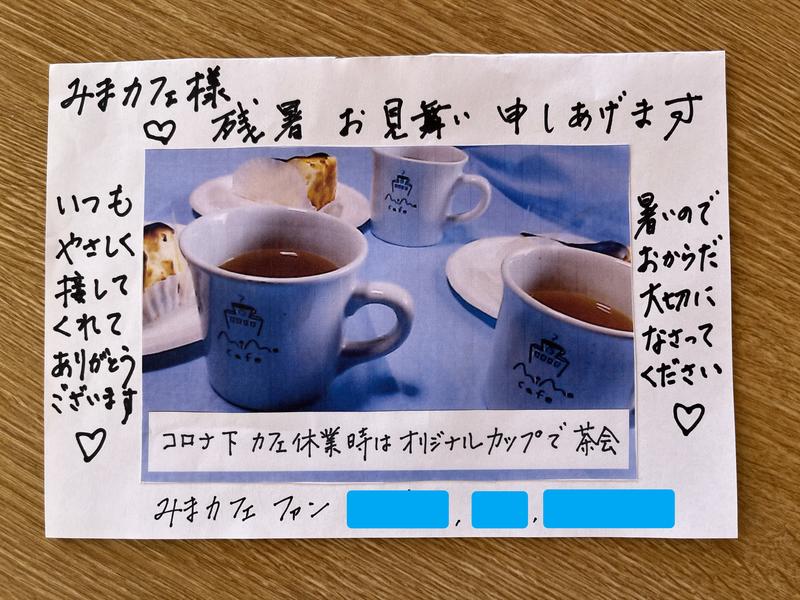 みまカフェ様
♡ 残暑 お見舞い 申しあげます
いつも
やさしく
接して
くれて
ありがとう
ございます
♡
暑いので
おからだ
大切に
なさって
ください
♡
cafe
cafe
cafe
コロナ下 カフェ休業時は オリジナルカップで 茶会
みまカフェ ファン , ,